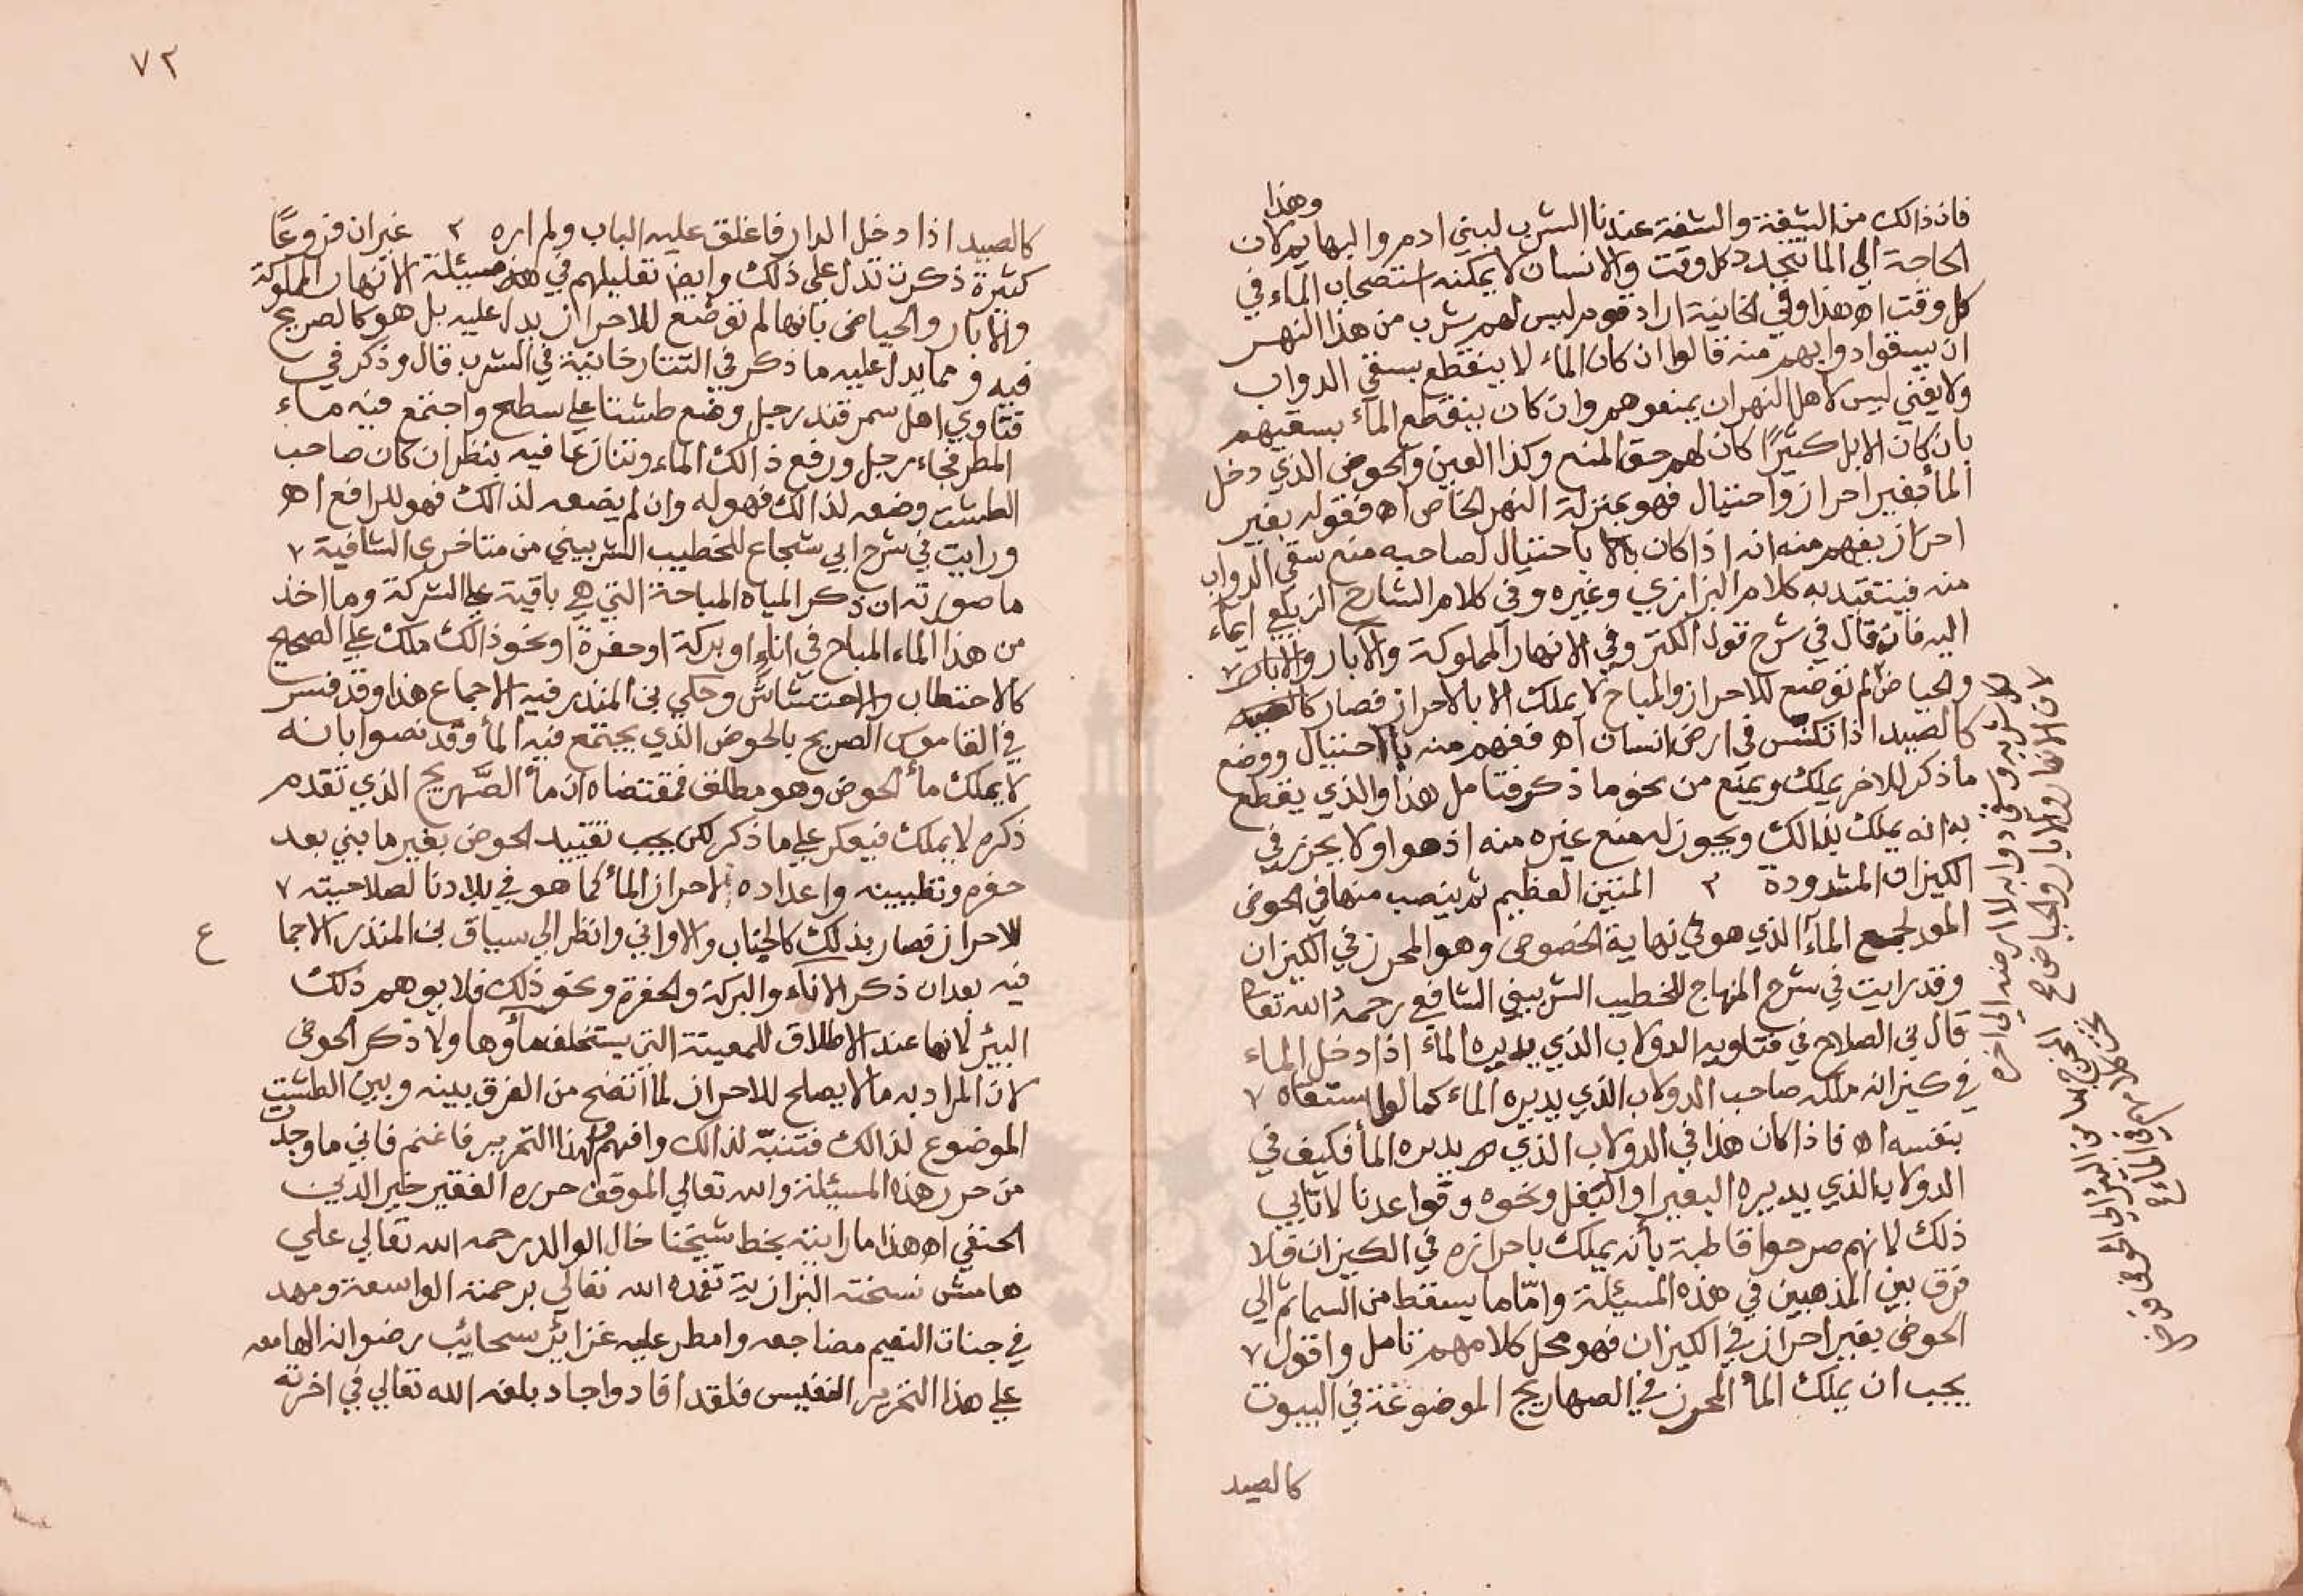 وهذا
فان ذالك من الشفة والشفة عندنا الشرب لبني ادم والبهايم لان
الحاجة الي الما تتجدد كل وقت والانسان لا يمكنه استصحاب الماء في
كل وقت اه هذا وفي الخانية اراد قوم ليس لهم شرب من هذا النهر
ان يسقوا دوابهم منه قالوا ان كان الماء لا ينقطع بسقي الدواب
ولا يفني ليس لاهل النهر ان يمنعوهم وان كان ينقطع الماء بسقيهم
بان كان الابل كثيرًا كان لهم حق المنع وكذا العين والحوض الذي دخل
الماء بغير احراز واحتيال فهو بمنزلة النهر الخاص اه فقوله بغير
احراز يفهم منه انه اذا كان باحتيال لصاحبه منع سقي الدواب
منه فيتقيد به كلام البزازي وغيره وفي كلام الشارح الزيلعي ايماء
اليه فانه قال في شرح قول الكنز وفي الانهار المملوكة والآبار
والحياض لم توضع للاحراز والمباح لا يملك الا بالاحراز فصار
كالصيد اذا تكنس في ارض انسان اه ففهم منه بالاحتيال ووضع
ما ذكر للاخر يملك ويمنع من نحو ما ذكر فتامل هذا والذي يقطع
به انه يملك بذالك ويجوز له منع غيره منه اذ هو اولا يحرز في
الكيزان المشدودة ٢ المتين العظيم ثم ينصب منها في الحوض
المعد لجمع الماء الذي هو في نهاية الخصوص وهو المحرز في الكيزان
وقد رايت في شرح المنهاج للخطيب الشربيني الشافعي رحمه الله تعا
قال بن الصلاح في فتاويه الدولاب الذي يديره الماء اذا دخل الماء
في كيزانه ملكه صاحب الدولاب الذي يديره الماء كما لو استقاه
بنفسه اه فاذا كان هذا في الدولاب الذي يديره الماء فكيف في
الدولاب الذي يديره البعير او البغل ونحوه وقواعدنا لا تابي
ذلك لانهم صرحوا قاطبة بأنه يملك باحرازه في الكيزان فلا
فرق بين المذهبين في هذه المسئلة وامّا ما يسقط من السماء ثم الي
الحوض بغير احراز في الكيزان فهو محل كلامهم تامل واقول
يجب ان يملك الماء المحرز في الصهاريج الموضوعة في البيوت
كالصيد
لان الانهار والابار والحياض
٧٢
كالصيد اذا دخل الدار فاغلق عليه الباب ولم اره ٢ غير ان فروعًا
كثيرة ذكرت تدل علي ذلك وايضا تعليلهم في هذه مسئلة الانهار المملوكة
والابار والحياض بانها لم توضع للاحراز يدل عليه بل هو كالصريح
فيه ومما يدل عليه ما ذكر في التتارخانية في الشرب قال وذكر في
فتاوي اهل سمرقند رجل وضع طشتا علي سطح واجتمع فيه ماء
المطر فجاء رجل ورفع ذالك الماء وتنازعا فيه ينظر ان كان صاحب
الطشت وضعه لذالك فهو له وان لم يضعه لذالك فهو للرافع اه
ورايت في شرح ابي شجاع للخطيب الشربيني من متاخري الشافية
ما صورته ان ذكر المياه المباحة التي هي باقية علي الشركة وما اخذ
من هذا الماء المباح في اناءٍ او بركة او حفرة او نحو ذالك ملك علي الصحيح
كالاحتطاب والاحتشاش وحكي بن المنذر فيه الاجماع هذا وقد فسر
في القاموس الصريج بالحوض الذي يجتمع فيه الماء وقد نصوا بانه
لا يملك ماء الحوض وهو مطلق فمقتضاه ان ماء الصَّهريج الذي تقدم
ذكره لا يملك فيعكر علي ما ذكر لكن يجب تقييد الحوض بغير ما بني بعد
حفره وتطيينه واعداده لاحراز الماء كما هو في بلادنا لصلاحيته
للاحراز فصار بذلك كالجباب والاواني وانظر الي سياق بن المنذر الاجما
ع
فيه بعد ان ذكر الاناء والبركة والحفرة ونحو ذلك فلا يوهم ذلك
البئر لانها عند الاطلاق للمعينة التي يستخلف ماؤها ولا ذكر الحوض
لان المراد به ما لا يصلح للاحراز لما اتضح من الفرق بينه وبين الطشت
الموضوع لذالك فتنبّه لذالك وافهم لهذا التحرير فاغنم فاني ما وجدت
من حرر هذه المسئلة والله تعالي الموفق حرره الفقير خير الدين
الحنفي اه هذا ما رايته بخط شيخنا خال الوالد رحمه الله تعالي علي
هامش نسخته البزازية تغمده الله تعالي برحمته الواسعة ومهد
في جنات النعيم مضاجعه وامطر عليه غزائر سحايب رضوانه الهامعه
علي هذا التحرير النفيس فلقد افاد واجاد بلغه الله تعالي في اخرته